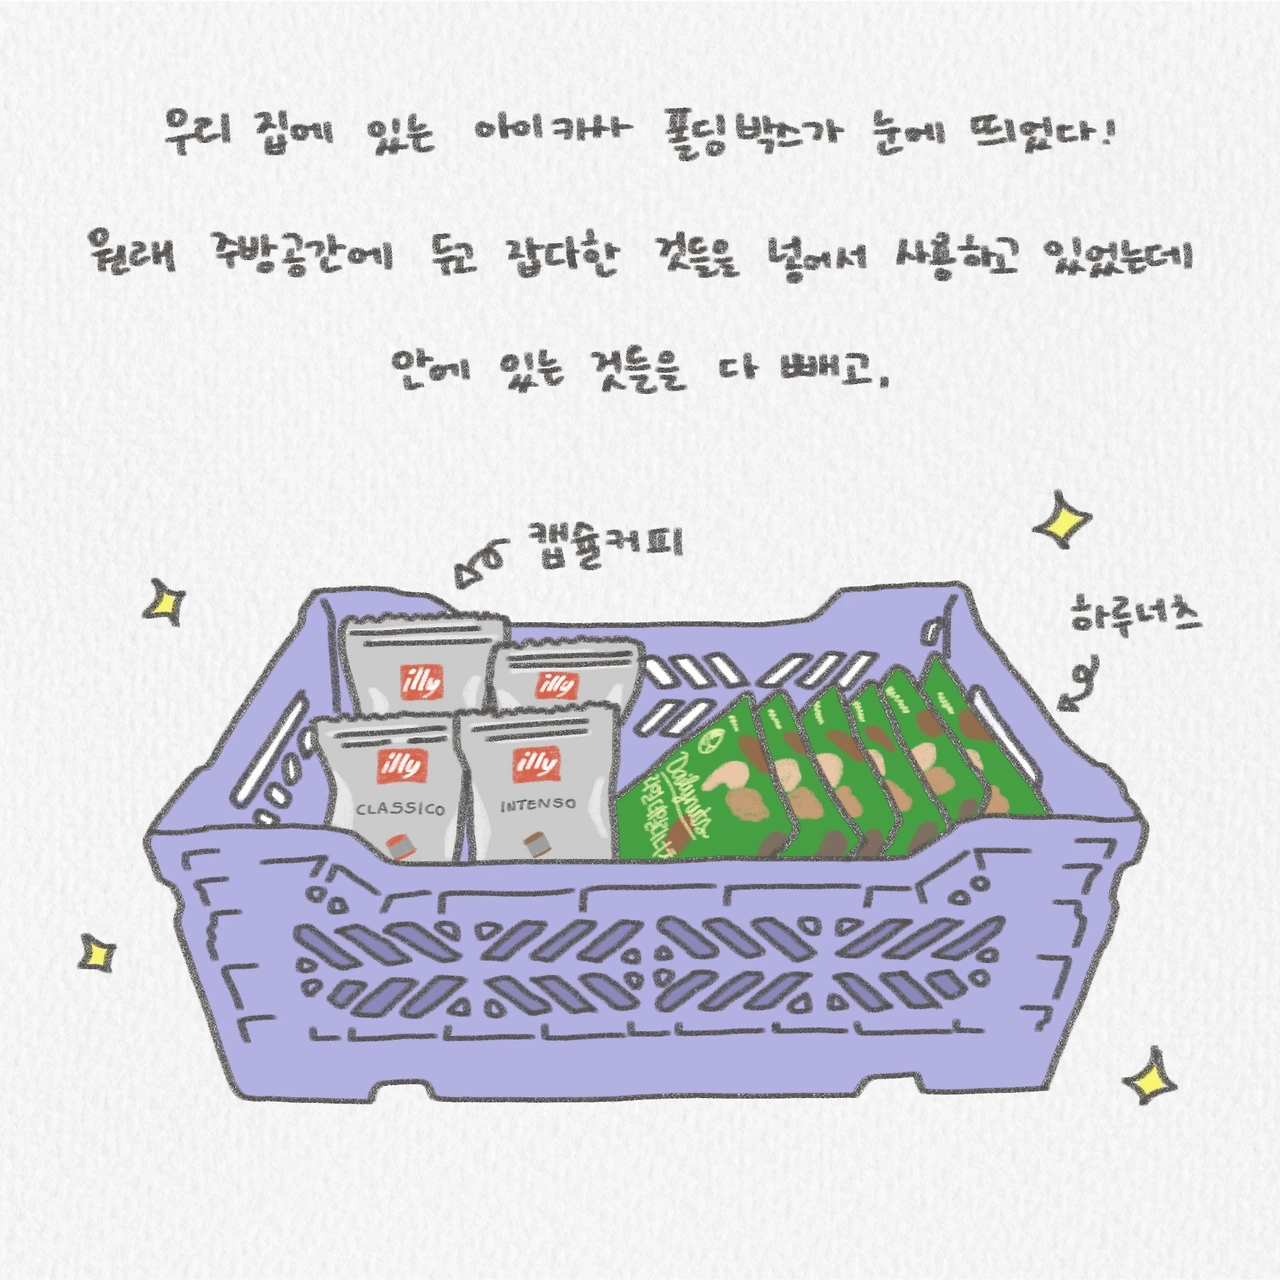 우리 집에 있는 아이카사 폴딩박스가 눈에 띄었다!
원래 주방공간에 두고 잡다한 것들을 넣어서 사용하고 있었는데
안에 있는 것들을 다 빼고,
캡슐커피
하루너츠
illy
illy
illy
CLASSICO
illy
INTENSO
Dailynuts